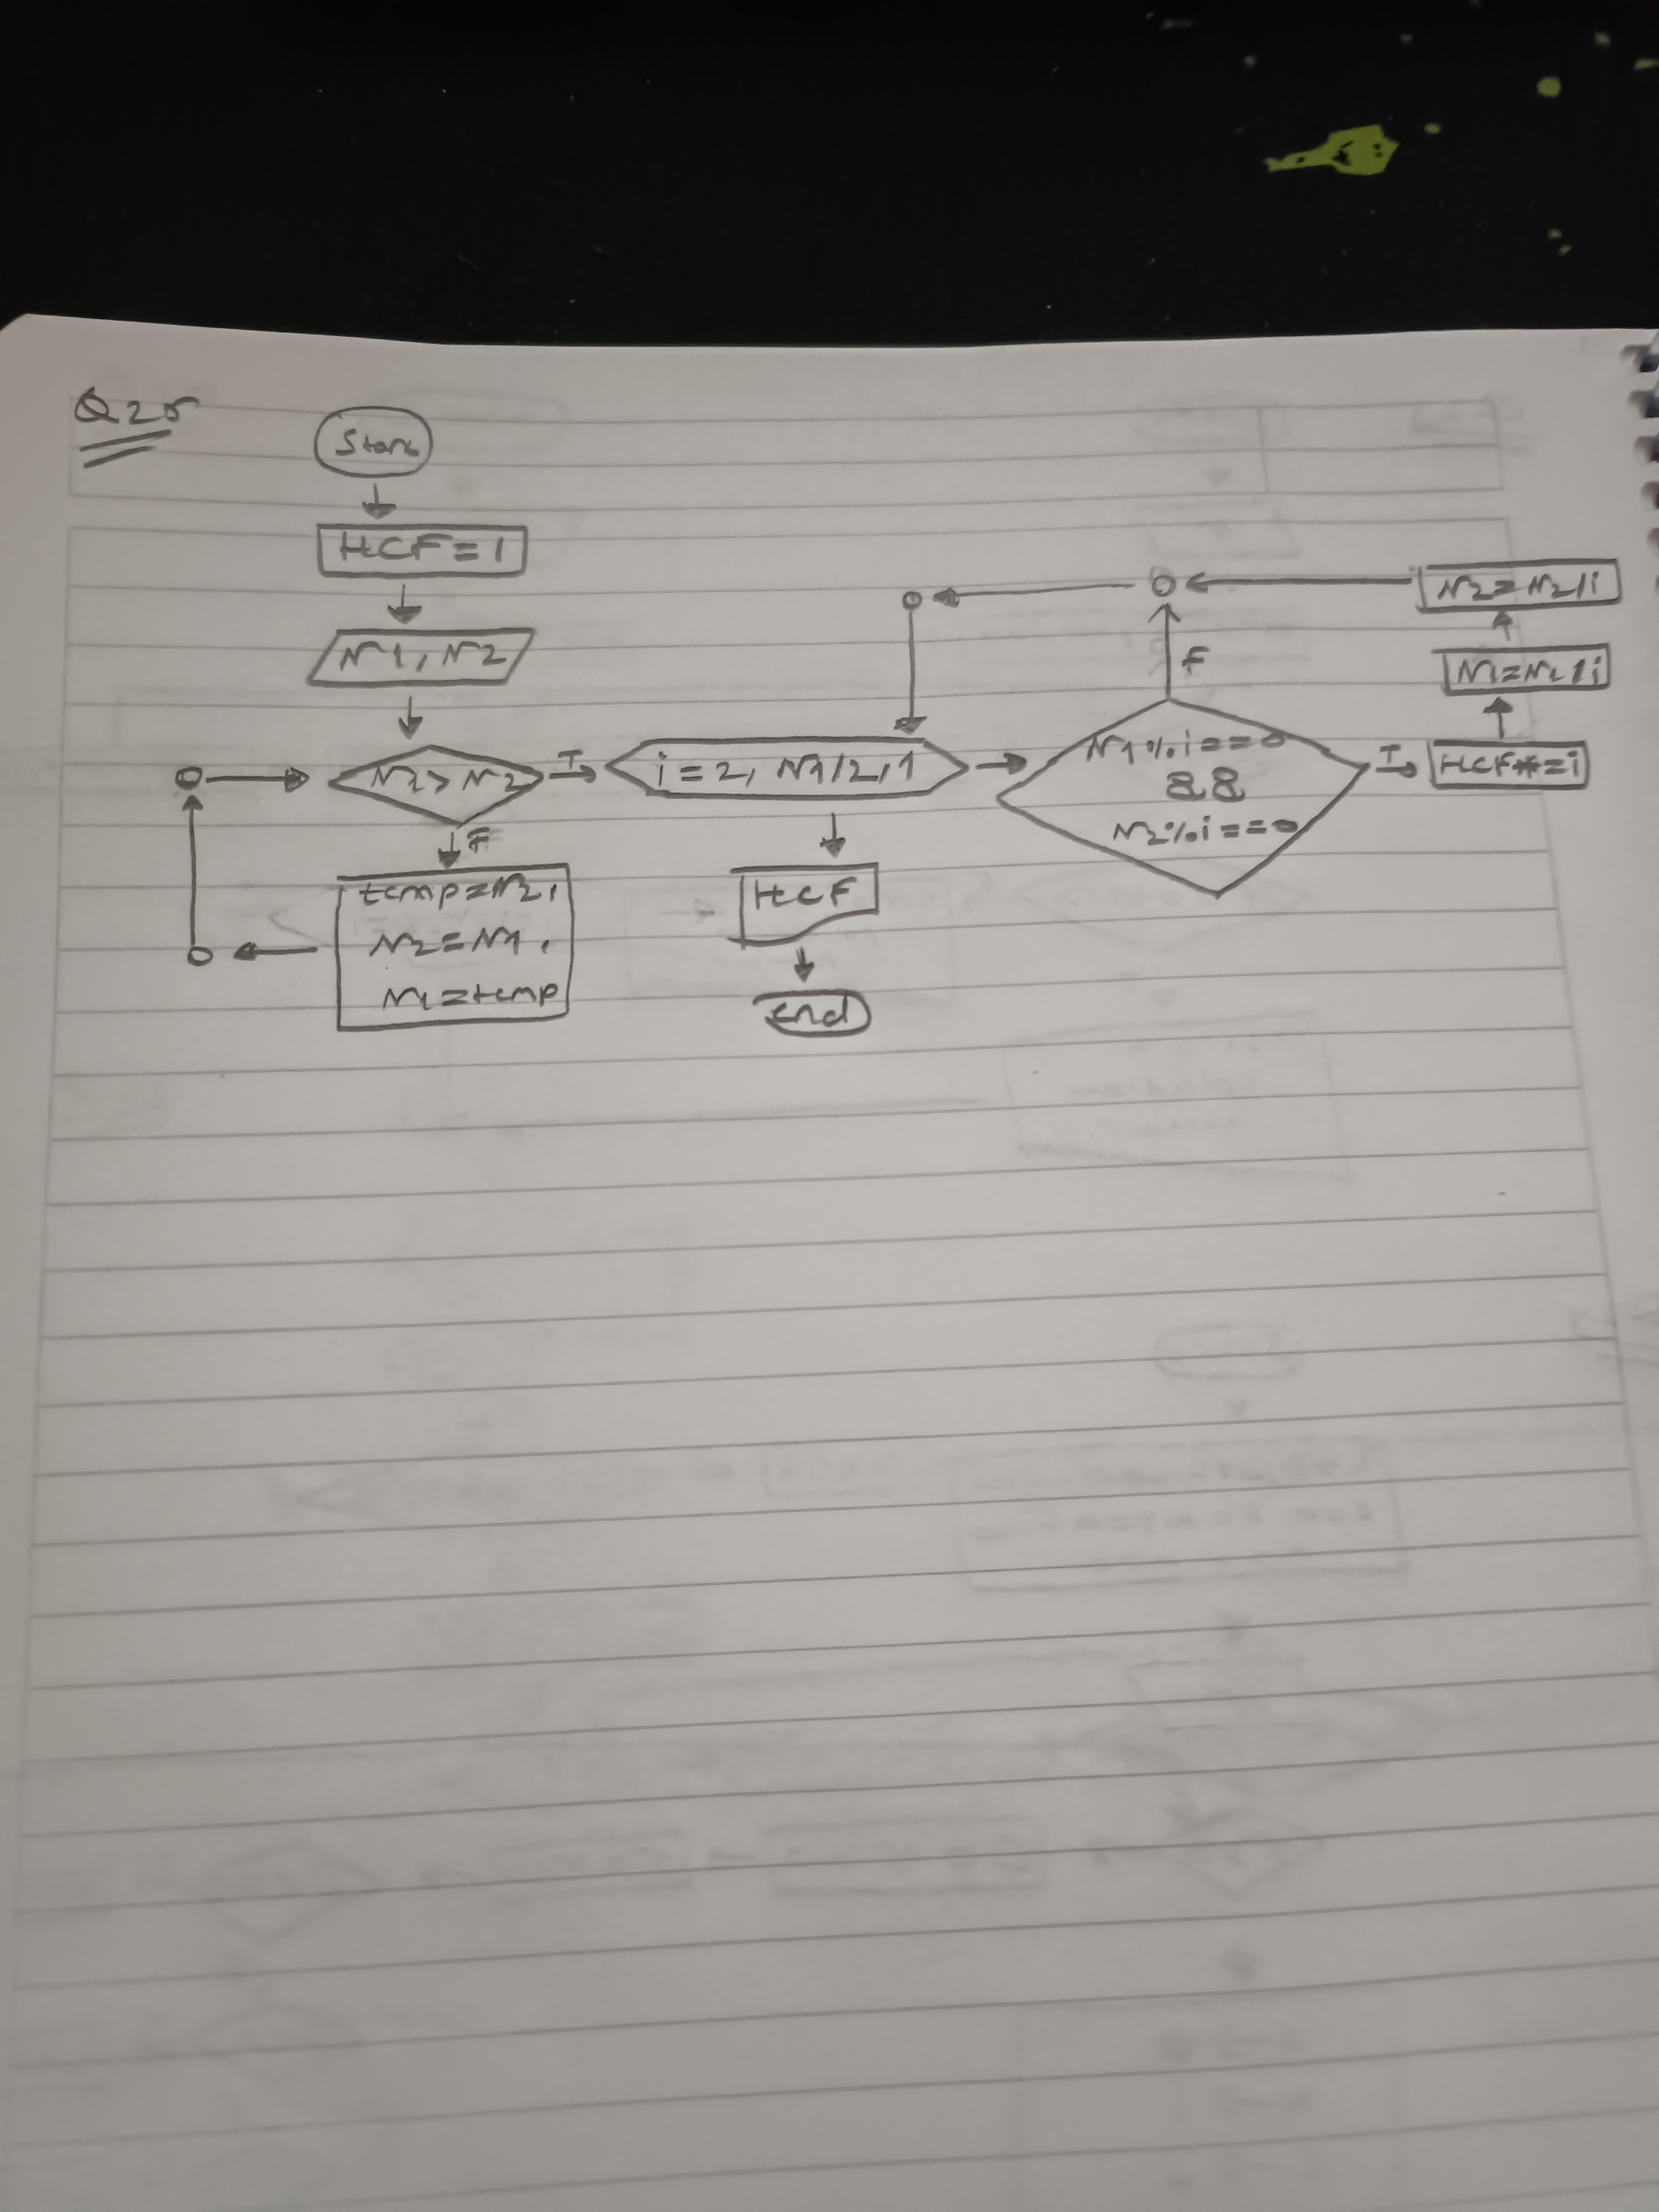 Q25
Start
HCF=1
N1, N2
N1>N2
T
F
temp=N2,
N2=N1,
N1=temp
i=2, N1/2, 1
HCF
end
N1%i==0
&&
N2%i==0
F
T
HCF*=i
N1=N1/i
N2=N2/i